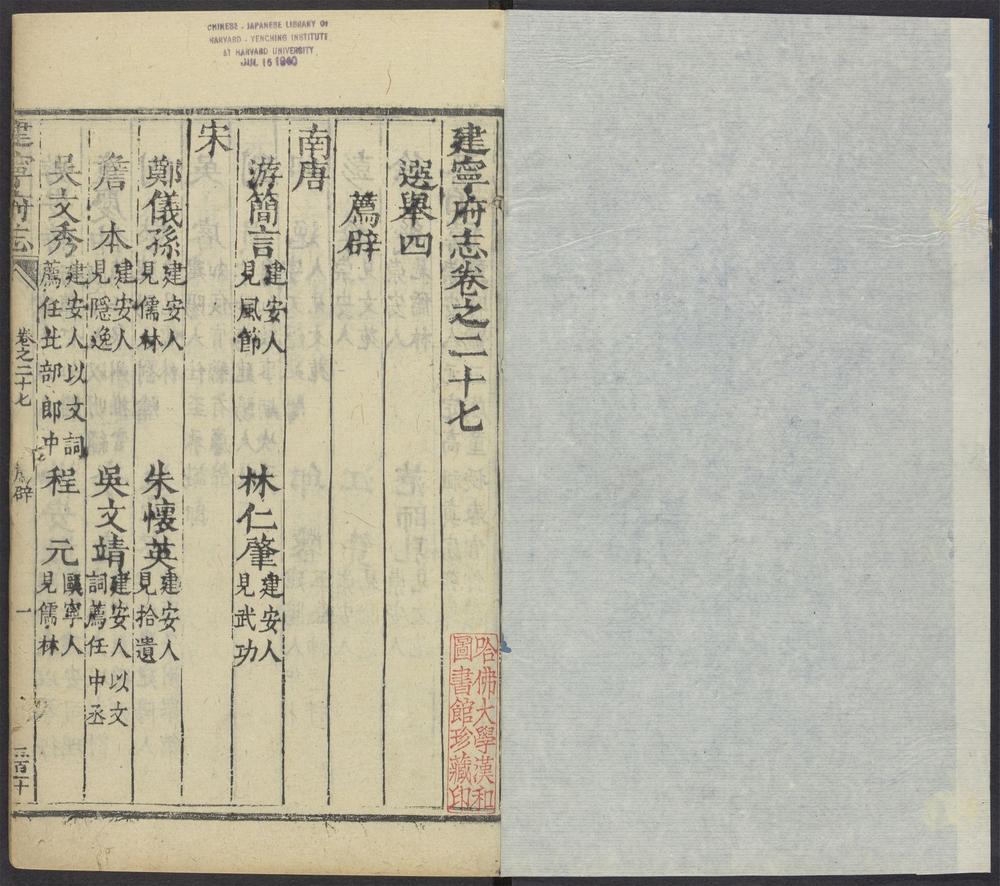 CHINESE - JAPANESE LIBRARY OF
HARVARD - YENCHING INSTITUTE
AT HARVARD UNIVERSITY
JUL 16 1940
建寧府志卷之二十七
選舉四
薦辟
南唐
游簡言建安人見風節
林仁肇建安人見武功
宋
鄭儀孫建安人見儒林
朱懷英建安人見拾遺
詹本建安人見隱逸
吳文靖建安人以文詞薦任中丞
吳文秀建安人以文詞薦任比部郎中
程元甌寧人見儒林
建寧府志
卷之二十七
薦辟
一
哈佛大學漢和
圖書館珍藏印